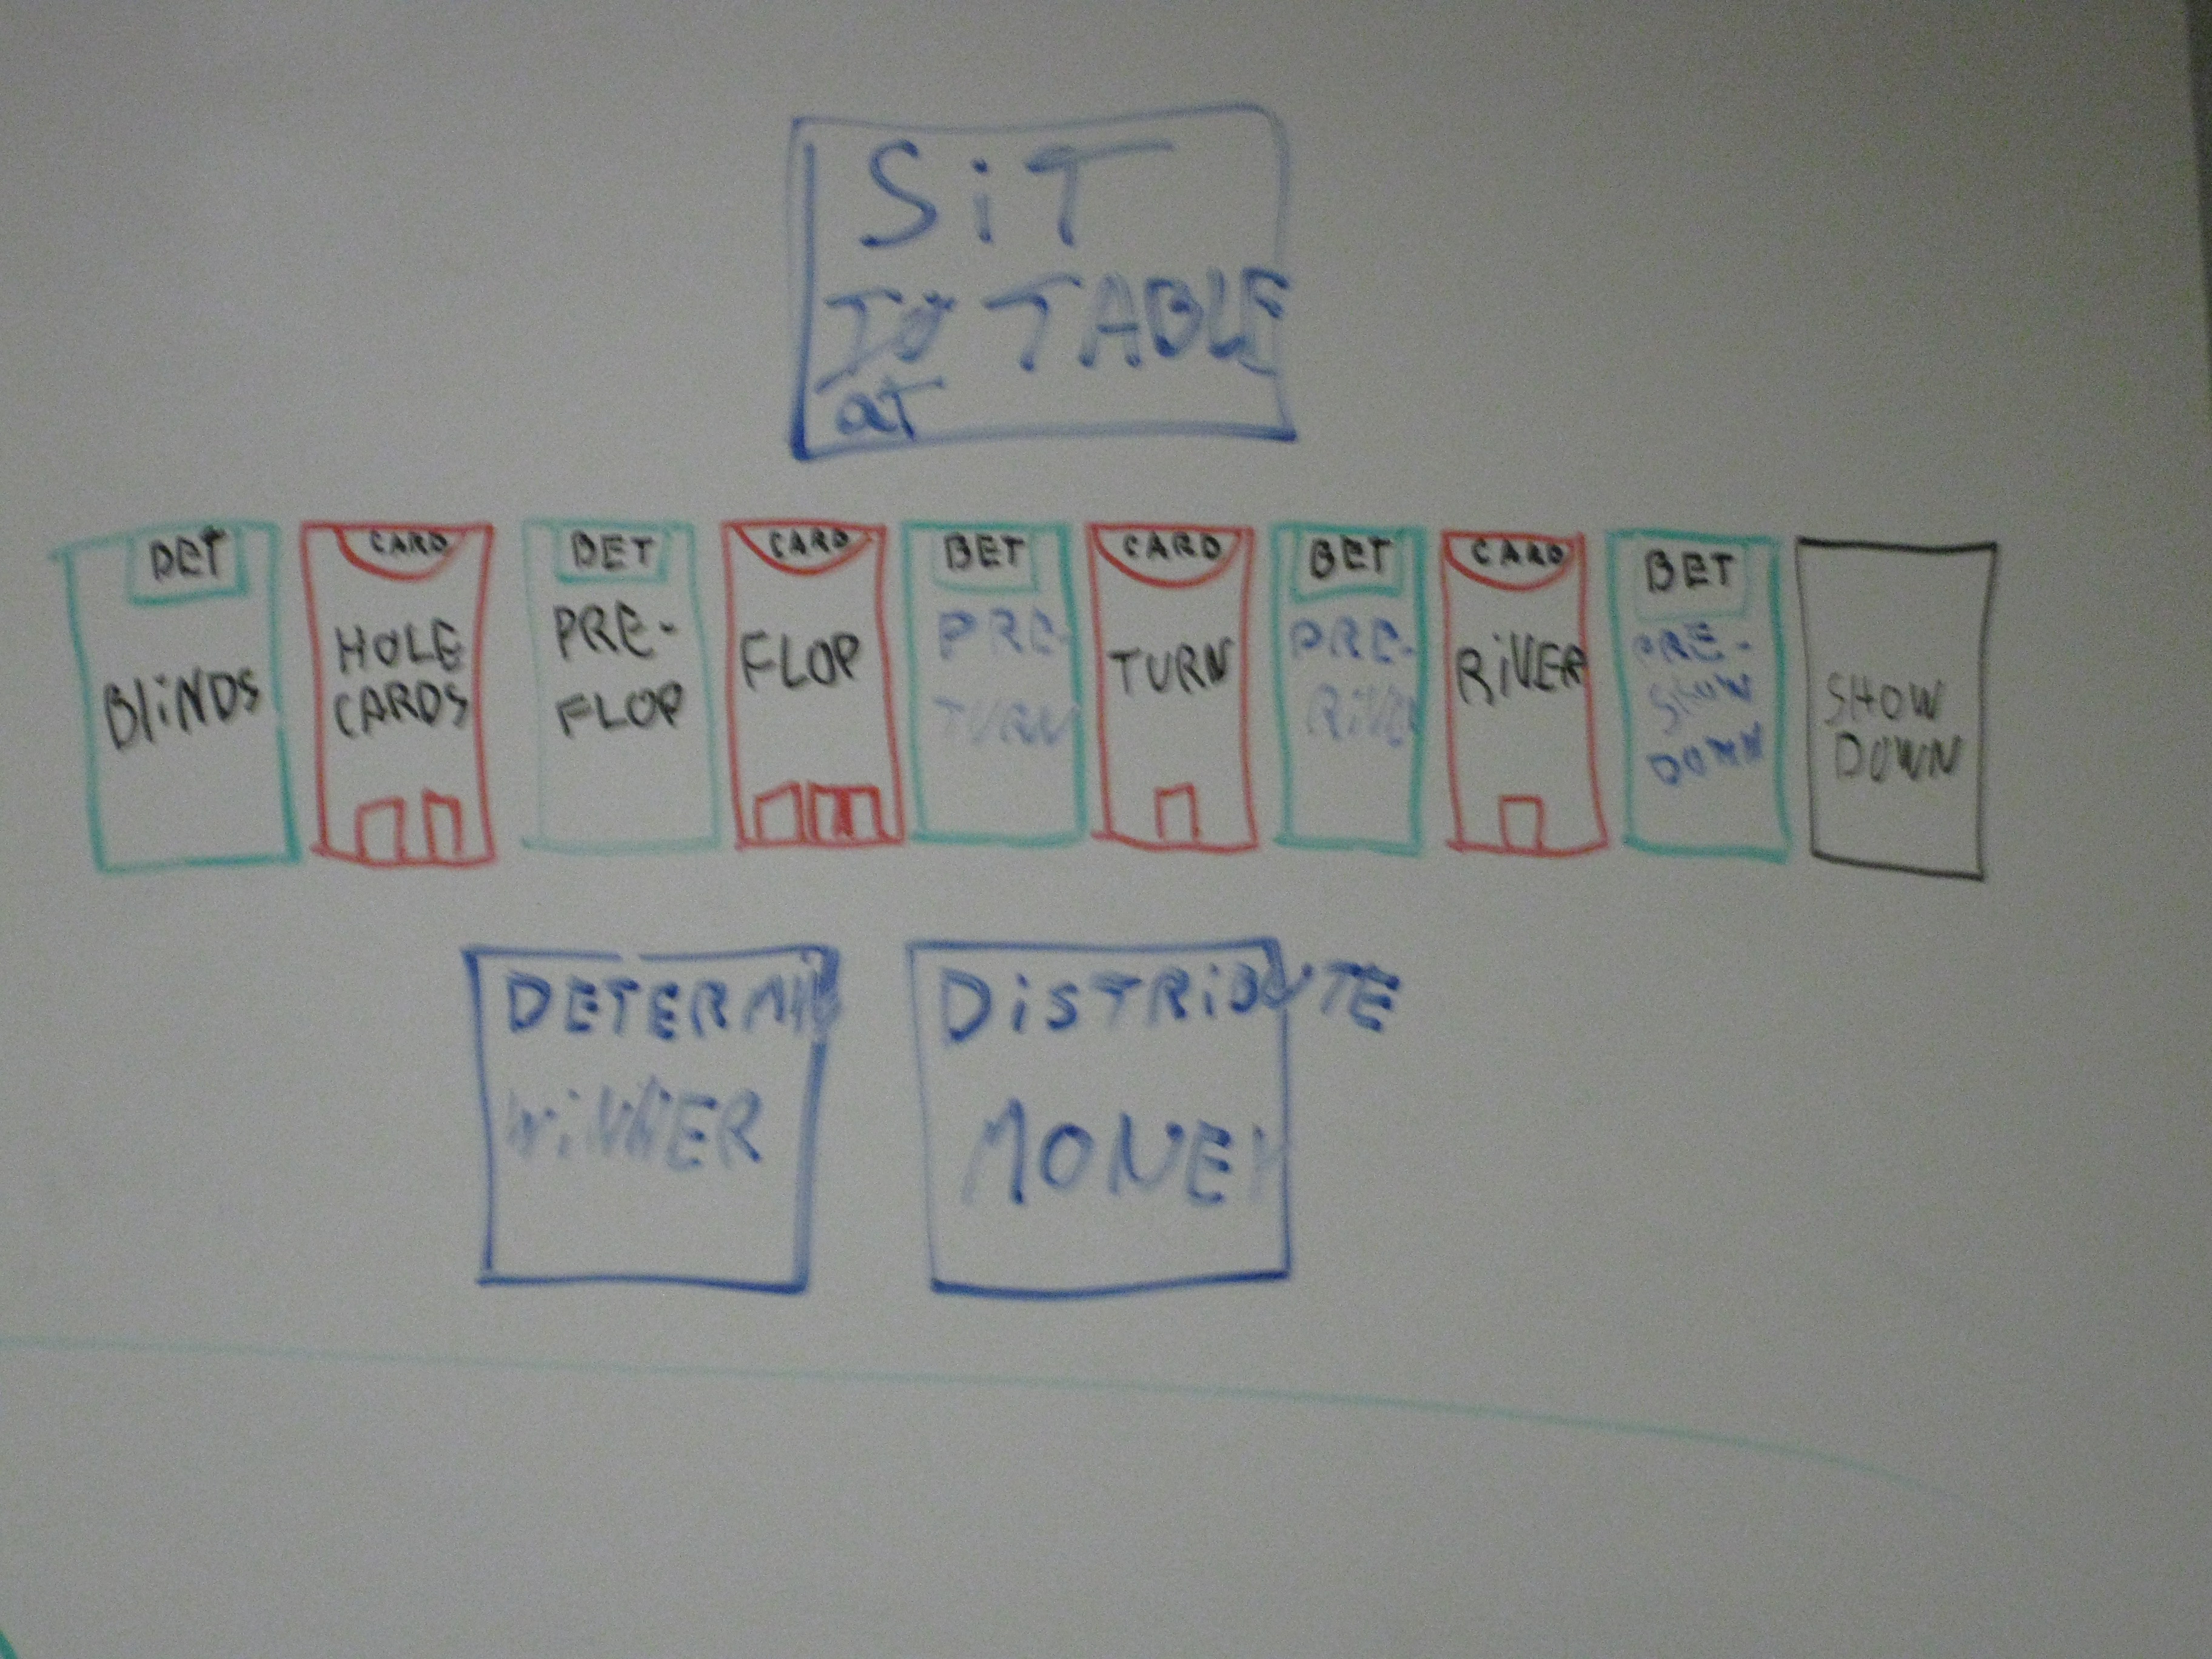 SiT
TO TABLE
aT
BET
BLiNDS
CARD
HOLE
CARDS
BET
PRE-
FLOP
CARD
FLOP
BET
PRE-
TURN
CARD
TURN
BET
PRE-
RiVER
CARD
RiVER
BET
PRE-
SHOW
DOWN
SHOW
DOWN
DETERMiNE
WiNNER
DiSTRiBUTE
MONEY